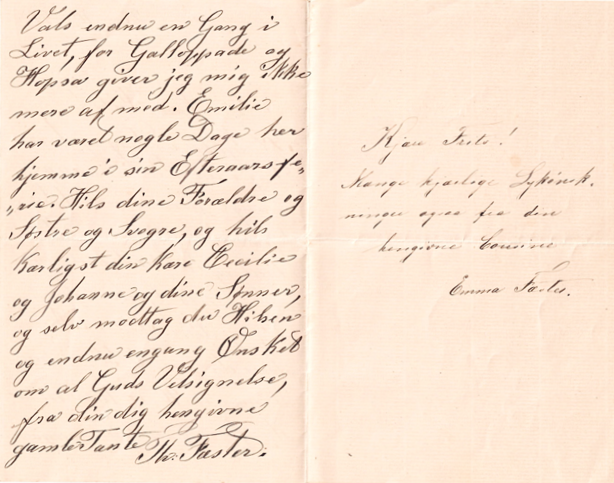 Vals endnu en Gang i
Livet, for Galloppade og
Hopsa giver jeg mig ikke
mere af med. Emilie
har været nogle Dage her
hjemme i sin Efteraarsfe„
„rie. Hils dine Forældre og
Søstre og Svogre, og hils
Kærligst din kære Cecilie
og Johanne og dine Sønner,
og selv modtag du Hilsen
og endnu engang Ønsket
om al Guds Velsignelse,
fra din dig hengivne
gamle Tante Th. Fæster.
Kjære Frits!
Mange kjærlige Lykønsk-
ninger ogsaa fra din
hengivne Cousine
Emma Fæster.